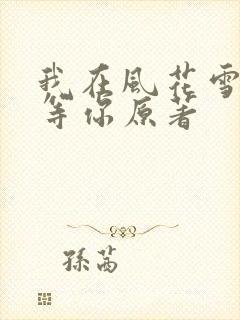 我在風花雪
等你原著
孫茜